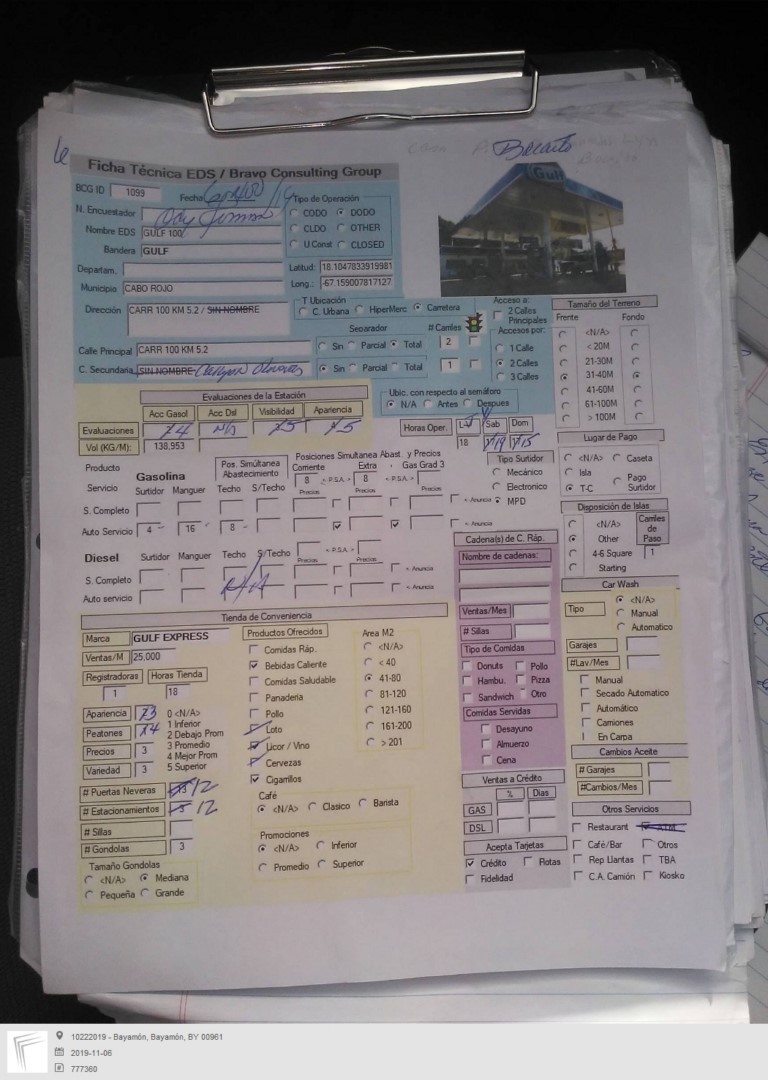 Becerto
Gulf
Ficha Técnica EDS / Bravo Consulting Group
BCG ID 1099 Fecha
Tipo de Operación
N. Encuestador
CODO DODO
Nombre EDS GULF 100
CLDO OTHER
Bandera GULF
U Const CLOSED
Departam.
Latitud: 18.1047833919981
Municipio CABO ROJO
Long.: -67.159007817127
Dirección CARR 100 KM 5.2 / SIN NOMBRE
T Ubicación
C. Urbana HiperMerc Carretera
Separador # Carriles
Calle Principal CARR 100 KM 5.2 Sin Parcial Total 2
C. Secundaria SIN NOMBRE Sin Parcial Total 1
Acceso a:
2 Calles Principales
Accesos por:
1 Calle
2 Calles
3 Calles
Ubic. con respecto al semáforo
N/A Antes Despues
Tamaño del Terreno
Frente Fondo
<N/A>
< 20M
21-30M
31-40M
41-60M
61-100M
> 100M
Evaluaciones de la Estación
Acc Gasol Acc Dsl Visibilidad Apariencia
Evaluaciones 4 N/A 5 5
Vol (KG/M): 138,953
Horas Oper. L-J Sab Dom
18
Lugar de Pago
<N/A> Caseta
Isla Pago Surtidor
T-C
Producto
Servicio
Gasolina
Pos. Simúltanea Abastecimiento
Posiciones Simultanea Abast. y Precios
Corriente Extra Gas Grad 3
8 < P.S.A. > 8
Surtidor Manguer Techo S/Techo Precios Precios Precios
S. Completo < Anuncia
Auto Servicio 4 16 8 < Anuncia
Tipo Surtidor
Mecánico
Electronico
MPD
Disposición de Islas
<N/A>
Other
4-6 Square
Starting
Carriles de Paso
1
Diesel Surtidor Manguer Techo S/Techo < P.S.A. >
Precios Precios
S. Completo < Anuncia
Auto servicio N/A < Anuncia
Cadena(s) de C. Ráp.
Nombre de cadenas:
Ventas/Mes
# Sillas
Tipo de Comidas
Donuts Pollo
Hambu. Pizza
Sandwich Otro
Comidas Servidas
Desayuno
Almuerzo
Cena
Ventas a Crédito
% Dias
GAS
DSL
Acepta Tarjetas
Crédito Flotas
Fidelidad
Car Wash
Tipo <N/A>
Manual
Automatico
Garajes
#Lav/Mes
Manual
Secado Automatico
Automático
Camiones
En Carpa
Cambios Aceite
# Garajes
#Cambios/Mes
Otros Servicios
Restaurant ATM
Café/Bar Otros
Rep Llantas TBA
C.A. Camión Kiosko
Tienda de Conveniencia
Marca GULF EXPRESS
Ventas/M 25.000
Registradoras Horas Tienda
1 18
Apariencia 3 0 <N/A>
Peatones 4 1 Inferior
2 Debajo Prom
Precios 3 3 Promedio
4 Mejor Prom
Variedad 3 5 Superior
# Puertas Neveras 12
# Estacionamientos 12
# Sillas
# Gondolas 3
Tamaño Gondolas
<N/A> Mediana
Pequeña Grande
Productos Ofrecidos
Comidas Ráp.
Bebidas Caliente
Comidas Saludable
Panaderia
Pollo
Loto
Licor / Vino
Cervezas
Cigarrillos
Café
<N/A> Clasico Barista
Promociones
<N/A> Inferior
Promedio Superior
Area M2
<N/A>
< 40
41-80
81-120
121-160
161-200
> 201
10222019 - Bayamón, Bayamón, BY 00961
2019-11-06
777360